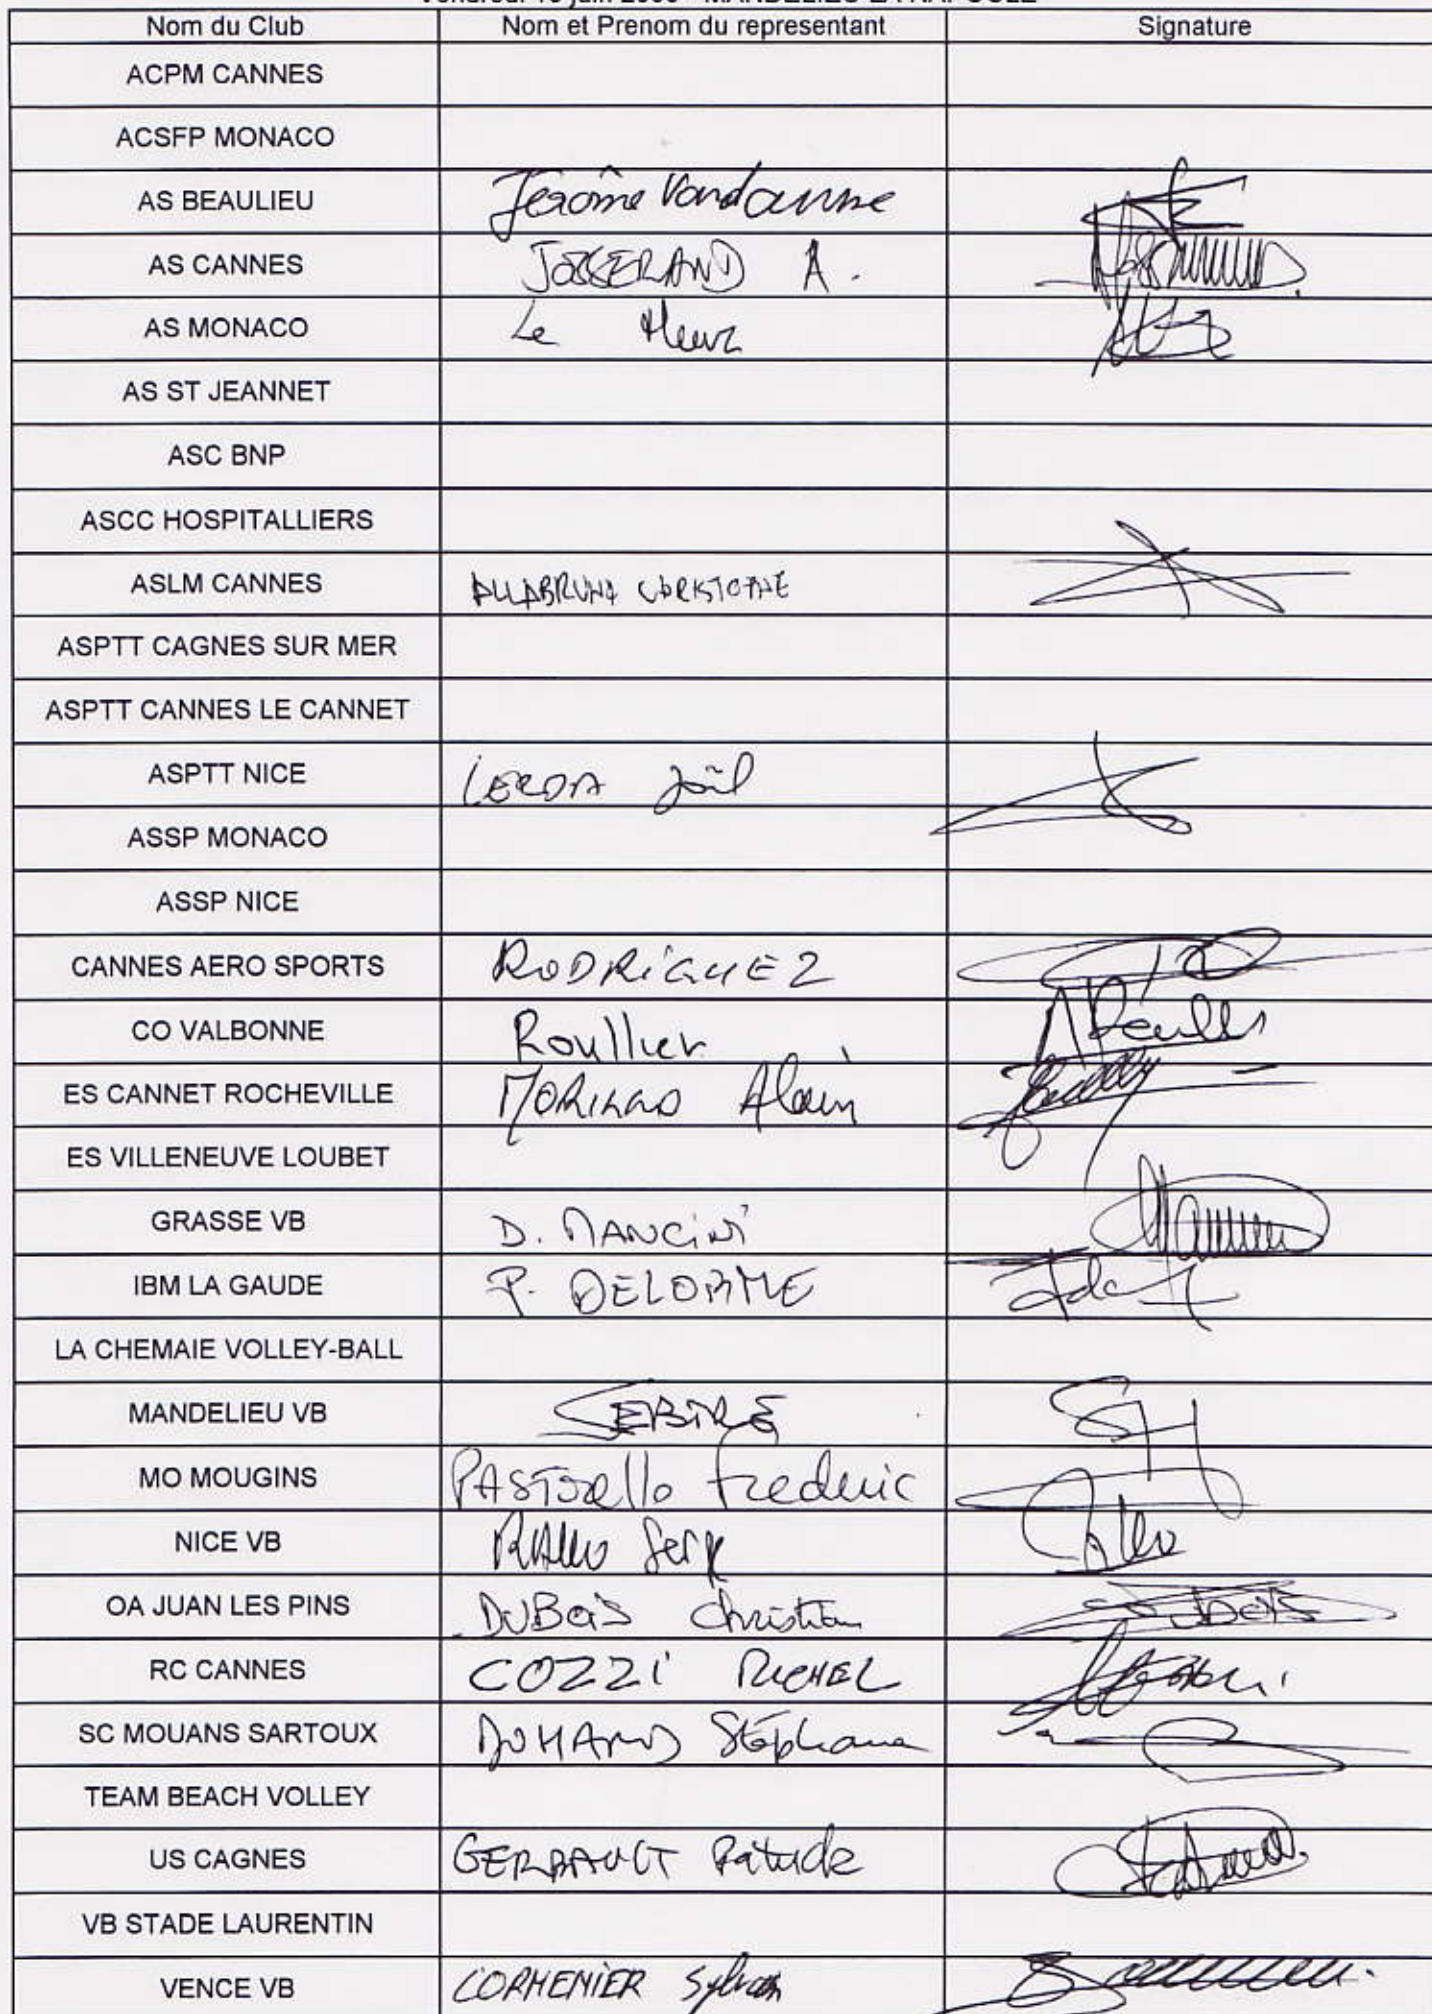 Nom du Club Nom et Prenom du representant Signature
ACPM CANNES
ACSFP MONACO
AS BEAULIEU Jérôme Vandamme
AS CANNES JOSSERAND A.
AS MONACO Le
AS ST JEANNET
ASC BNP
ASCC HOSPITALLIERS
ASLM CANNES
ASPTT CAGNES SUR MER
ASPTT CANNES LE CANNET
ASPTT NICE LERDA Joël
ASSP MONACO
ASSP NICE
CANNES AERO SPORTS RODRIGUEZ
CO VALBONNE Roullier
ES CANNET ROCHEVILLE Alain
ES VILLENEUVE LOUBET
GRASSE VB D. MANCINI
IBM LA GAUDE P. DELORME
LA CHEMAIE VOLLEY-BALL
MANDELIEU VB SEBIRE
MO MOUGINS PASTORello Frederic
NICE VB Serge
OA JUAN LES PINS DUBOIS Christian
RC CANNES COZZI MICHEL
SC MOUANS SARTOUX Stéphane
TEAM BEACH VOLLEY
US CAGNES GERBAULT
VB STADE LAURENTIN
VENCE VB CORMENIER Sylvain